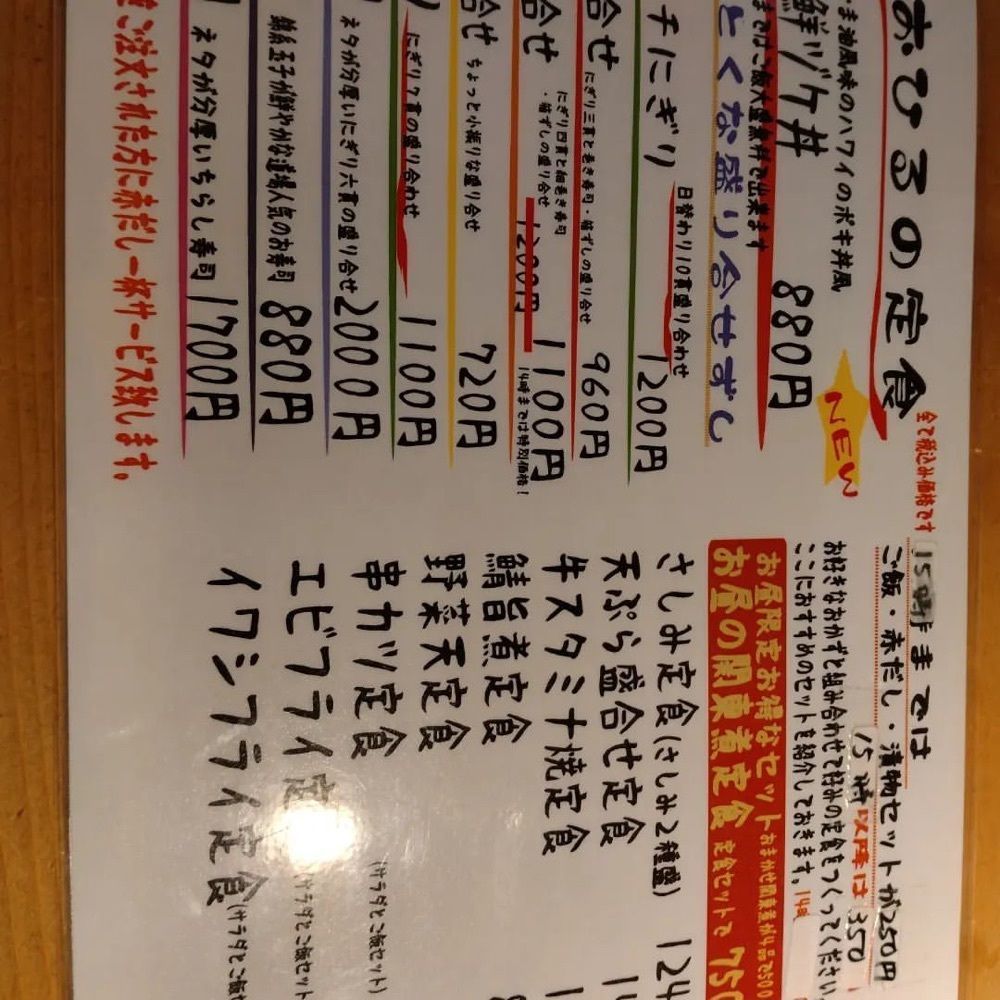 おひるの定食
全て税込み価格です
ま油風味のハワイのポキ丼風
鮮ヅケ丼 880円
NEW
まではご飯大盛無料で出来ます
とくな盛り合せずし
チにぎり 日替わり10貫盛り合わせ 1200円
合せ にぎり三貫と巻き寿司・箱ずしの盛り合せ 960円
合せ にぎり四貫と細巻き寿司・箱ずしの盛り合せ 1200円 1100円
14時までは特別価格!
合せ ちょっと小振りな盛り合せ 720円
にぎり7貫の盛り合わせ 1100円
ネタが分厚いにぎり六貫の盛り合せ 2000円
錦糸玉子が鮮やかな道場人気のお寿司 880円
ネタが分厚いちらし寿司 1700円
ご注文された方に赤だし一杯サービス致します。
15時までは
ご飯・赤だし・漬物セットが250円
15時以降は350
お好きなおかずと組み合わせて好みの定食をつくってください
ここにおすすめのセットを紹介しておきます。14時
お昼限定お得なセット
お昼の関東煮定食 定食セットで 750
さしみ定食(さしみ2種盛) 124
天ぷら盛合せ定食
牛スタミナ焼定食
鯖旨煮定食
野菜天定食
串カツ定食 (サラダとご飯セット)
エビフライ定 サラダとご飯セット
イワシフライ定食 (サラダとご飯セット